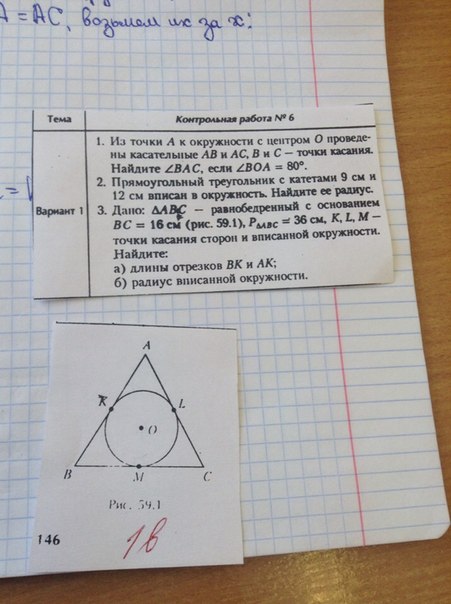 = AC, возьмем их за x:
Тема
Контрольная работа № 6
Вариант 1
1. Из точки A к окружности с центром O проведе-
ны касательные AB и AC, B и C – точки касания.
Найдите ∠BAC, если ∠BOA = 80°.
2. Прямоугольный треугольник с катетами 9 см и
12 см вписан в окружность. Найдите ее радиус.
3. Дано: △ABC – равнобедренный с основанием
BC = 16 см (рис. 59.1), P△ABC = 36 см, K, L, M –
точки касания сторон и вписанной окружности.
Найдите:
а) длины отрезков BK и AK;
б) радиус вписанной окружности.
A
K
L
O
B
M
C
Рис. 59.1
146
1в